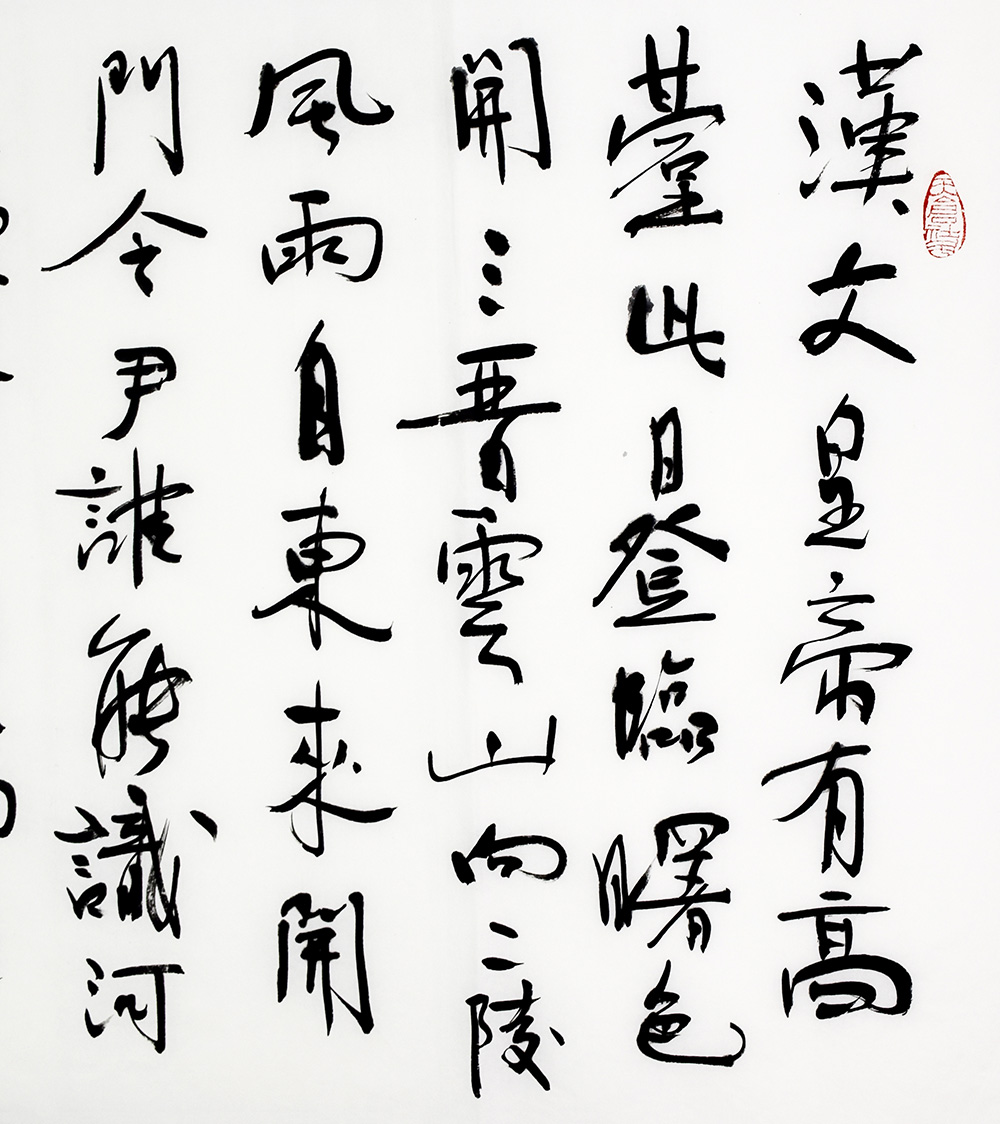 漢文皇帝有高
臺此日登臨曙色
開三晉雲山向二陵
風雨自東來開
門令尹誰能識河